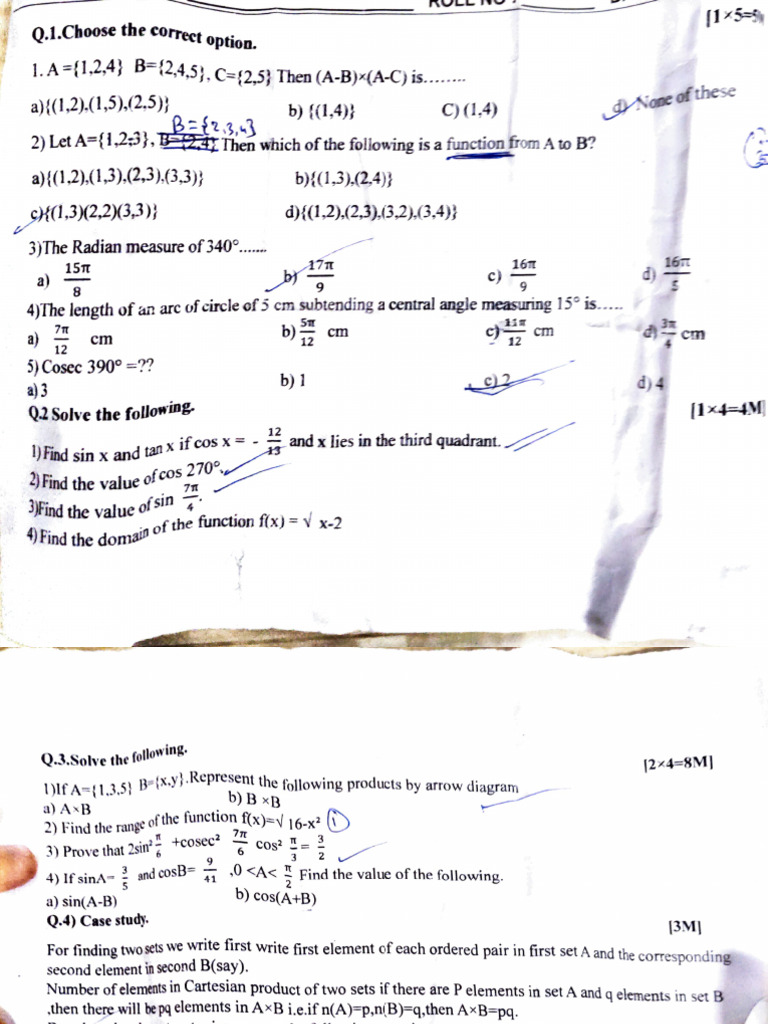 ROLL NO
[1×5=5]
Q.1.Choose the correct option.
1. A ={1,2,4} B={2,4,5}, C={2,5} Then (A-B)×(A-C) is........
a){(1,2).(1,5).(2,5)} b) {(1,4)} C) (1,4) d) None of these
B={2,3,4}
2) Let A={1,2,3}, B={2,4} Then which of the following is a function from A to B?
a){(1,2),(1,3),(2,3),(3,3)} b){(1,3),(2,4)}
c){(1,3)(2,2)(3,3)} d){(1,2),(2,3),(3,2),(3,4)}
3)The Radian measure of 340°.......
a) 15π/8 b) 17π/9 c) 16π/9 d) 16π/5
4)The length of an arc of circle of 5 cm subtending a central angle measuring 15° is.....
a) 7π/12 cm b) 5π/12 cm c) 11π/12 cm d) 3π/4 cm
5) Cosec 390° =??
a) 3 b) 1 c) 2 d) 4
Q.2 Solve the following. [1×4=4M]
1)Find sin x and tan x if cos x = - 12/13 and x lies in the third quadrant.
2)Find the value of cos 270°.
3)Find the value of sin 7π/4.
4) Find the domain of the function f(x) = √ x-2
Q.3.Solve the following. [2×4=8M]
1)If A={1,3,5} B={x,y}.Represent the following products by arrow diagram
a) A×B b) B ×B
2) Find the range of the function f(x)=√ 16-x² i
3) Prove that 2sin² π/6 +cosec² 7π/6 cos² π/3 = 3/2
4) If sinA= 3/5 and cosB= 9/41 ,0 <A< π/2 Find the value of the following.
a) sin(A-B) b) cos(A+B)
Q.4) Case study. [3M]
For finding two sets we write first write first element of each ordered pair in first set A and the corresponding
second element in second B(say).
Number of elements in Cartesian product of two sets if there are P elements in set A and q elements in set B
,then there will be pq elements in A×B i.e.if n(A)=p,n(B)=q,then A×B=pq.